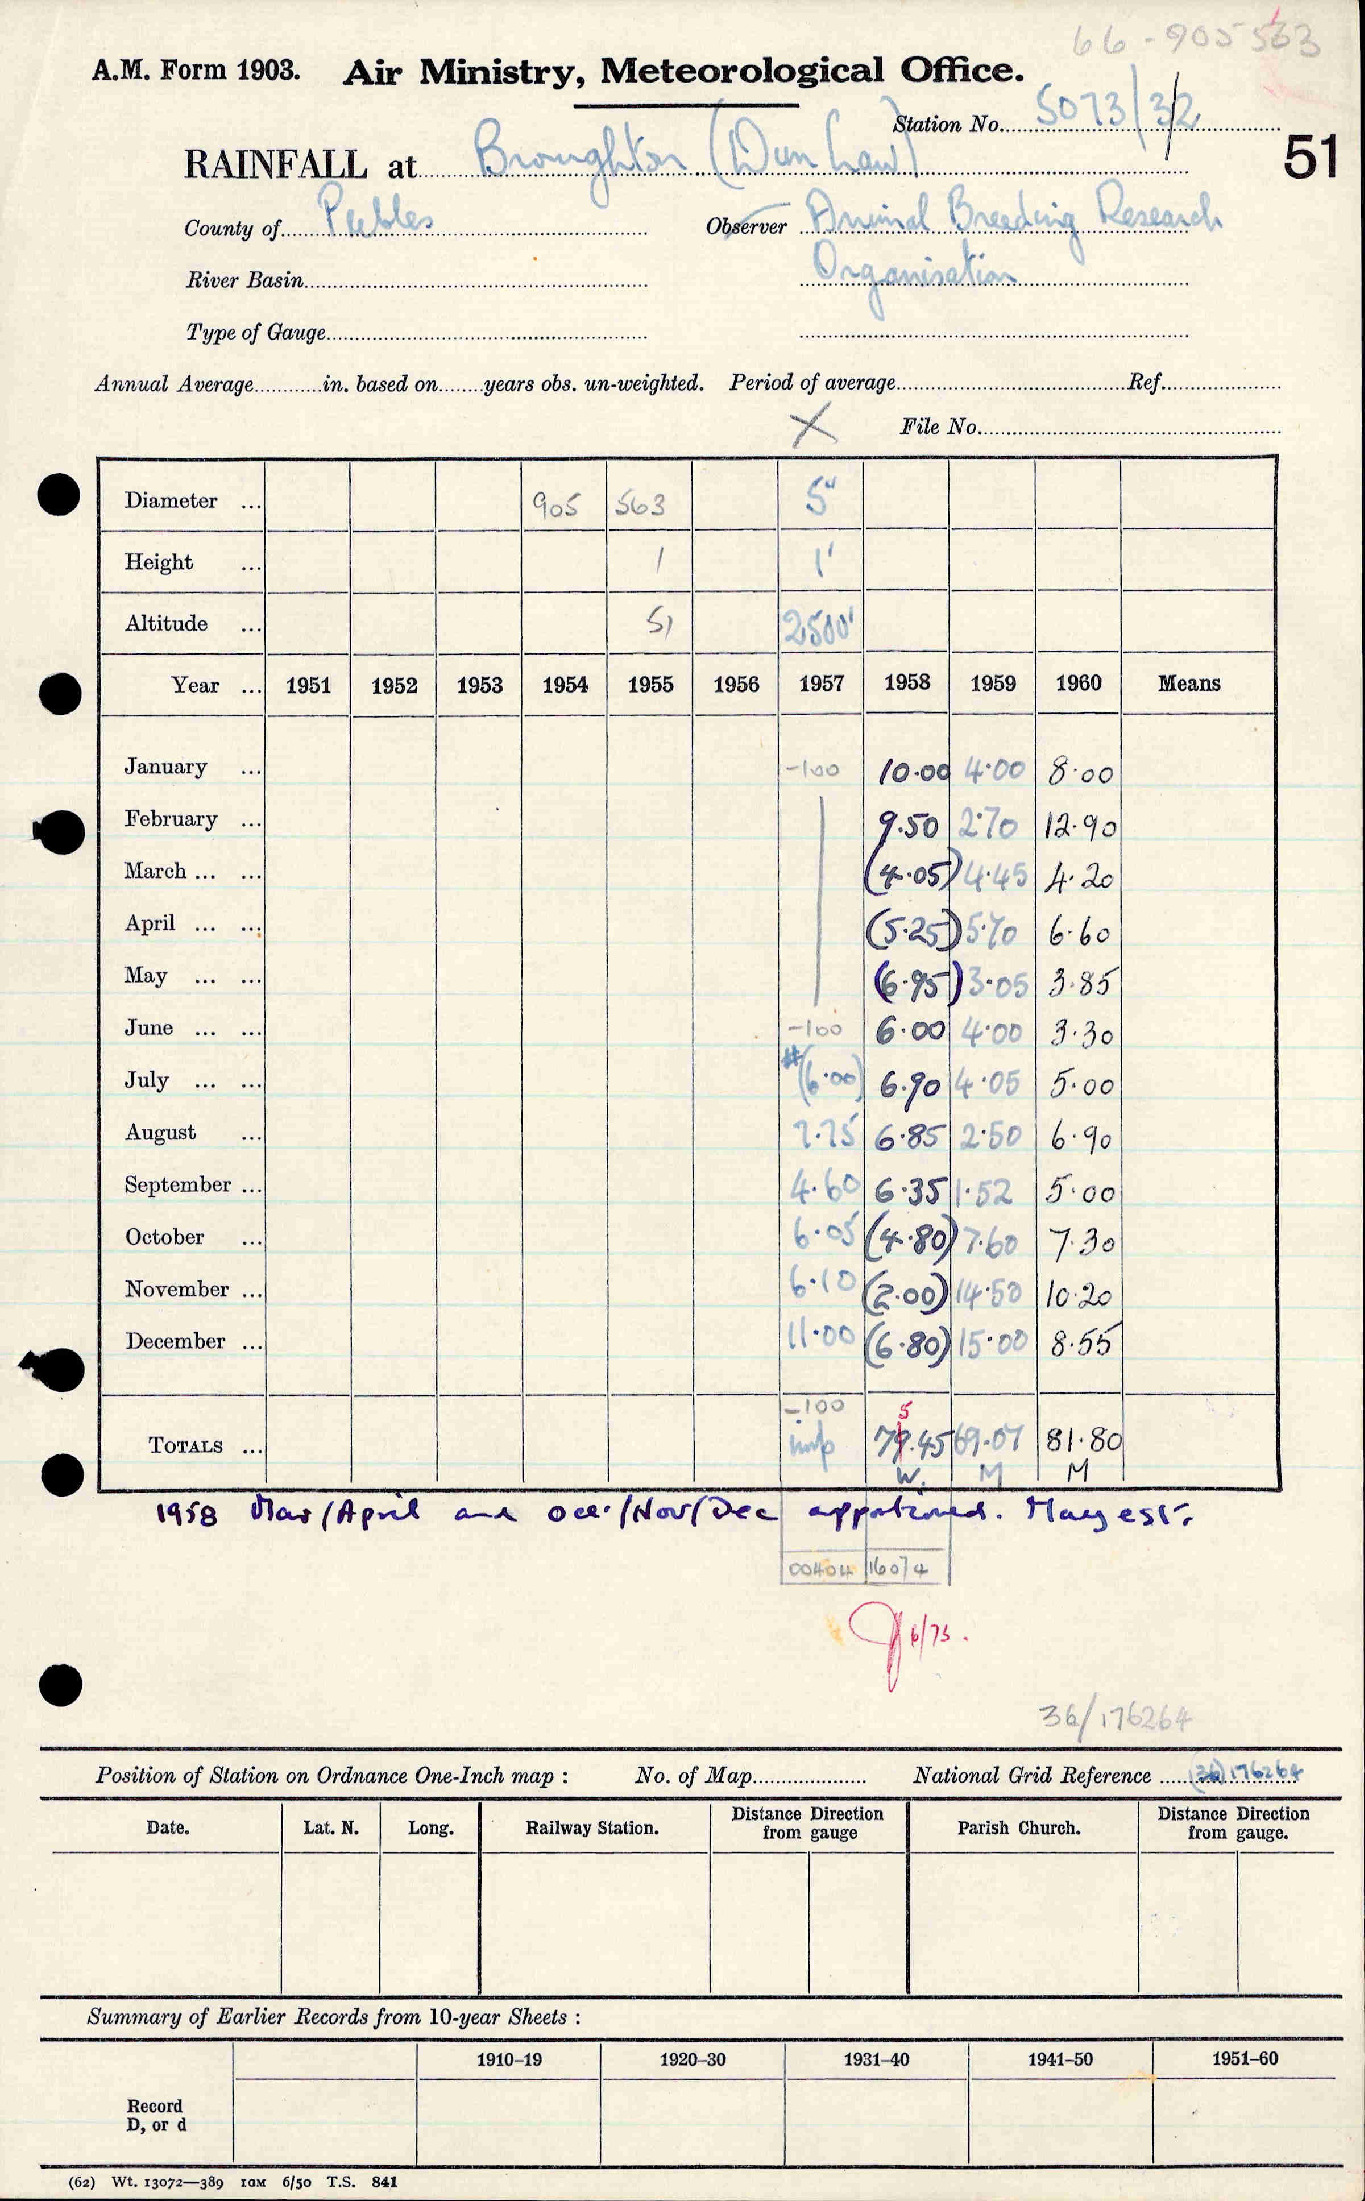 66-905563
A.M. Form 1903. Air Ministry, Meteorological Office.
Station No. 5073/3/2
51
RAINFALL at Broughton (Dun Law)
County of Peebles Observer Animal Breeding Research
River Basin Organisation
Type of Gauge
Annual Average in. based on years obs. un-weighted. Period of average Ref.
X File No.
Diameter ... 905 563 5"
Height ... 1 1'
Altitude ... 51 2500'
Year ... 1951 1952 1953 1954 1955 1956 1957 1958 1959 1960 Means
January ... -100 10.00 4.00 8.00
February ... 9.50 2.70 12.90
March ... ... (4.05) 4.45 4.20
April ... ... (5.25) 5.70 6.60
May ... ... (6.95) 3.05 3.85
June ... ... -100 6.00 4.00 3.30
July ... ... #(6.00) 6.90 4.05 5.00
August ... 7.75 6.85 2.50 6.90
September ... 4.60 6.35 1.52 5.00
October ... 6.05 (4.80) 7.60 7.30
November ... 6.10 (2.00) 14.50 10.20
December ... 11.00 (6.80) 15.00 8.55
-100 5
TOTALS ... imp 79.45 69.07 81.80
W. M M
1958 Mar/April and Oct/Nov/Dec apportioned. May est.
00404 16074
6/73.
36/176264
Position of Station on Ordnance One-Inch map : No. of Map National Grid Reference (36) 176264
Date. Lat. N. Long. Railway Station. Distance Direction from gauge Parish Church. Distance Direction from gauge.
Summary of Earlier Records from 10-year Sheets :
1910–19 1920–30 1931–40 1941–50 1951–60
Record
D, or d
(62) Wt. 13072—389 10M 6/50 T.S. 841